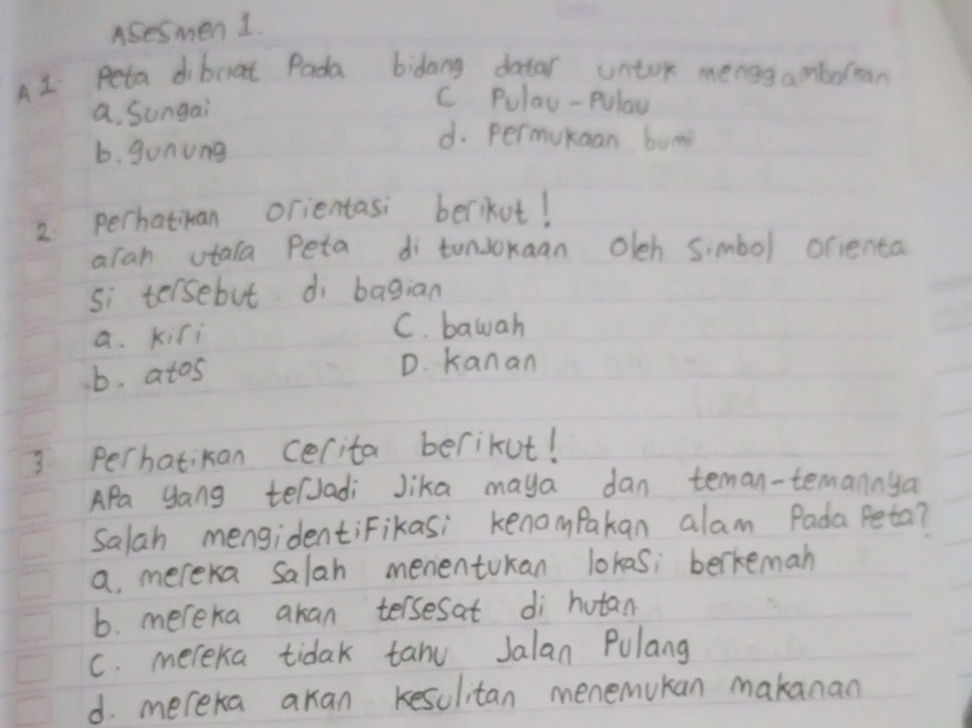 Asesmen 1.
A 1. Peta dibuat Pada bidang datar untuk menggambarkan
a. Sungai C. Pulau-Pulau
b. gunung d. Permukaan bumi
2. perhatikan orientasi berikut!
arah utara Peta di tunjukaan Oleh simbol orienta
si tersebut di bagian
a. kiri C. bawah
b. atas D. kanan
3. Perhatikan cerita berikut!
APa yang terJadi Jika maya dan teman-temannya
Salah mengidentiFikasi kenamPakan alam Pada Peta?
a. mereka Salah menentukan lokasi berkemah
b. mereka akan tersesat di hutan
C. mereka tidak tahu Jalan Pulang
d. mereka akan kesulitan menemukan makanan